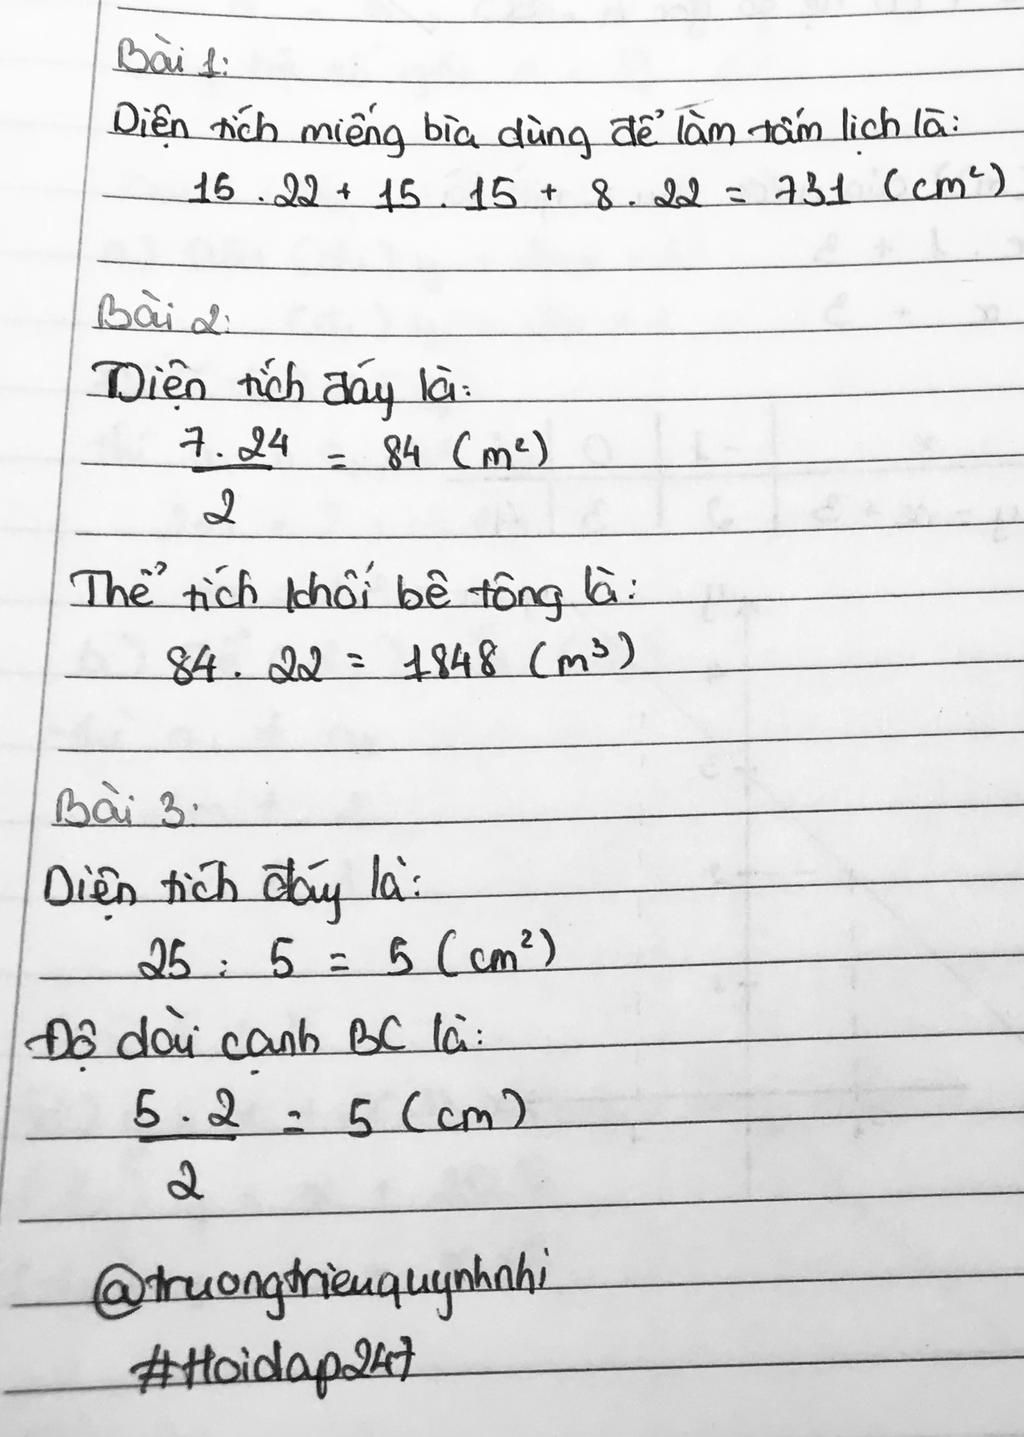 Bài 1:
Diện tích miếng bìa dùng để làm tấm lịch là:
15 . 22 + 15 . 15 + 8 . 22 = 731 (cm²)
Bài 2:
Diện tích đáy là:
7 . 24 / 2 = 84 (m²)
Thể tích khối bê tông là:
84 . 22 = 1848 (m³)
Bài 3:
Diện tích đáy là:
25 : 5 = 5 (cm²)
Độ dài cạnh BC là:
5 . 2 / 2 = 5 (cm)
@truongtrieuquynhnhi
#Hoidap247